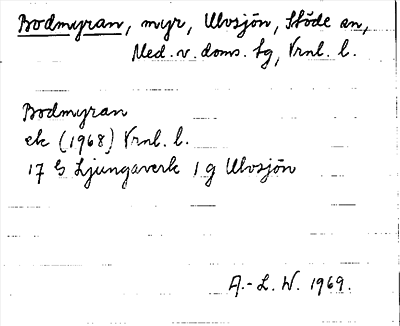 Bodmyran, myr, Ulvsjön, Stöde sn,
Med. v. doms. tg, Vrnl. l.
Bodmyran
ek (1968) Vrnl. l.
17 G Ljungaverk 1 g Ulvsjön
A.-L. W. 1969.